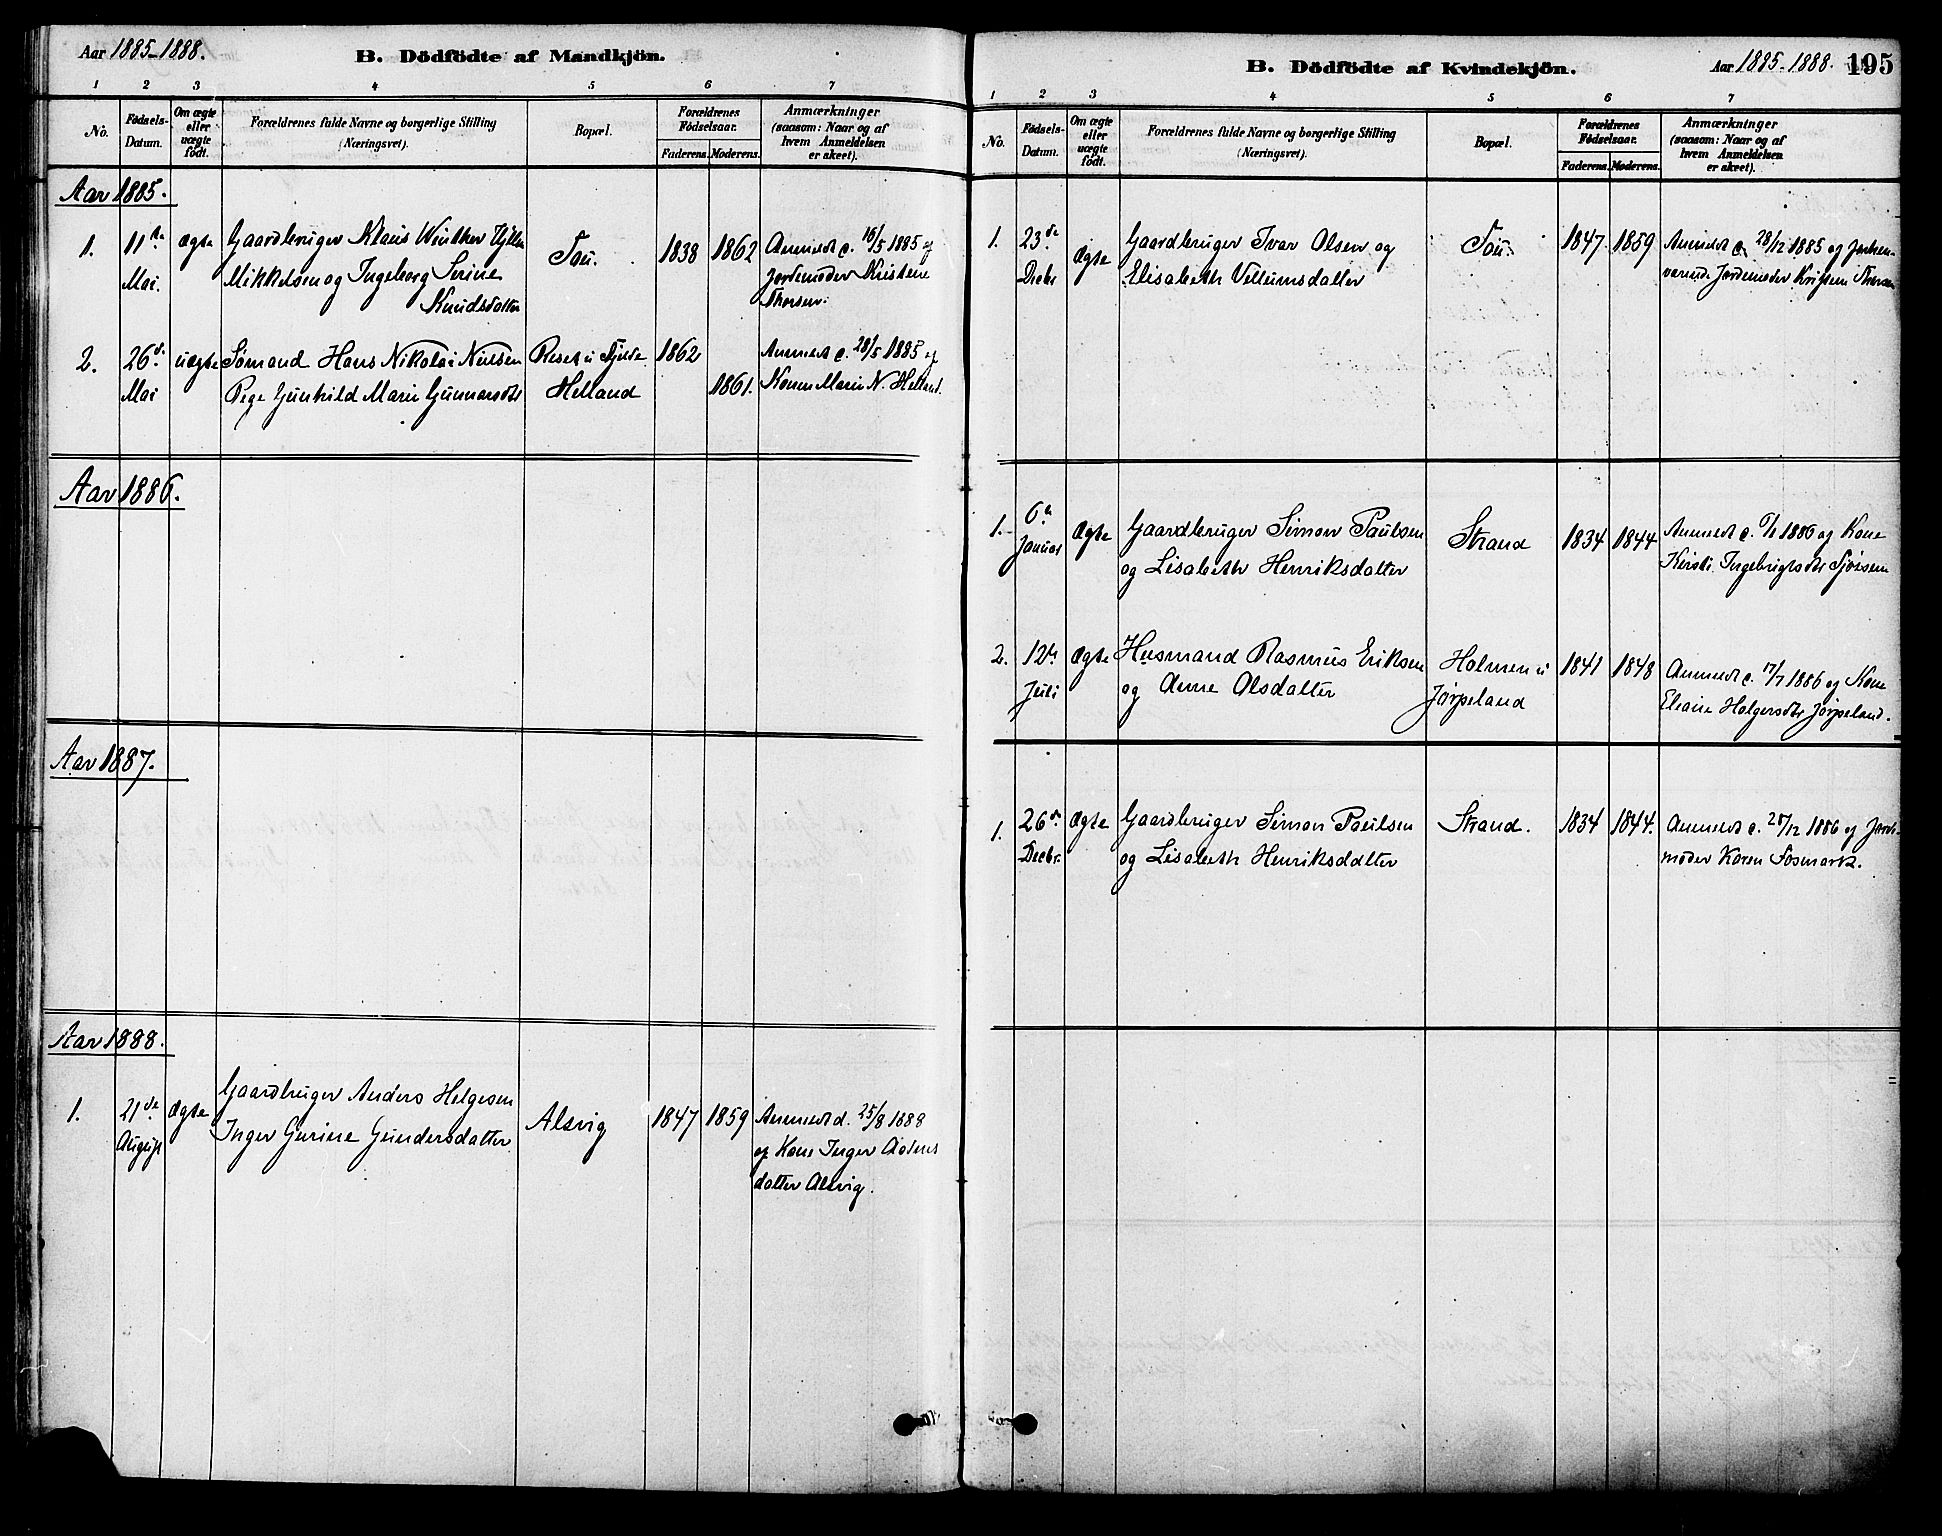 Aar 1885-1888.
B. Dödfödte af Mandkjön.
1 2 3 4 5 6 7
No.
Födsels-
Datum.
Om ægte
eller
uægte
födt.
Forældrenes fulde Navne og borgerlige Stilling
(Næringsvei).
Bopæl.
Forældrenes
Födselsaar.
Faderens. Moderens.
Anmærkninger
(saasom: Naar og af
hvem Anmeldelsen
er skeet).
Aar 1885.
1. 11te Mai. Ægte
Gaardbruger Klaus Winther
Mikkelsen og Ingeborg Serine
Knudsdatter
Tou. 1838 1862
Anmeldt d. 16/5 1885 af
Jordemoder Kristene
Thorsen.
2. 26de Mai uægte
Sømand Hans Nikolai Nielsen
Pige Gunhild Marie Gunnarsdtr
Helland
1862 1861.
Anmeldt d. 28/5 1885 af
Kone Marie N. Helland.
Aar 1886.
Aar 1887.
Aar 1888.
1. 21de August Ægte
Gaardbruger Anders Helgesen
Inger Gurine Gundersdatter
Alsvig 1847 1859
Anmeldt d. 25/8 1888
af Kone Inger
datter Alsvig.
B. Dödfödte af Kvindekjön.
Aar 1885-1888. 195
1 2 3 4 5 6 7
No.
Födsels-
Datum.
Om ægte
eller
uægte
födt.
Forældrenes fulde Navne og borgerlige Stilling
(Næringsvei).
Bopæl.
Forældrenes
Födselsaar.
Faderens. Moderens.
Anmærkninger
(saasom: Naar og af
hvem Anmeldelsen
er skeet).
1. 23de Decbr Ægte
Gaardbruger Ivar Olsen og
Elisabeth Velleiusdatter
Tou. 1847. 1859
Anmeldt d. 28/12 1885 af
Jordemoder
1. 6te Januar Ægte
Gaardbruger Simon Paulsen
og Lisabeth Henriksdatter
Strand 1834 1844
Anmeldt d. 1886 af Kone
Kirsti Ingebrigtsdtr
2. 12te Juli Ægte
Husmand Rasmus Eriksen
og Anne Olsdatter
Holmen u
Jørpeland
1841 1848
Anmeldt d. 17/7 1886 af Kone
Holgersdtr Jørpeland.
1. 26de Decbr. Ægte
Gaardbruger Simon Paulsen
og Lisabeth Henriksdatter
Strand. 1834 1844.
Anmeldt d. 1886 af Jorde-
moder Karen Fosmark.